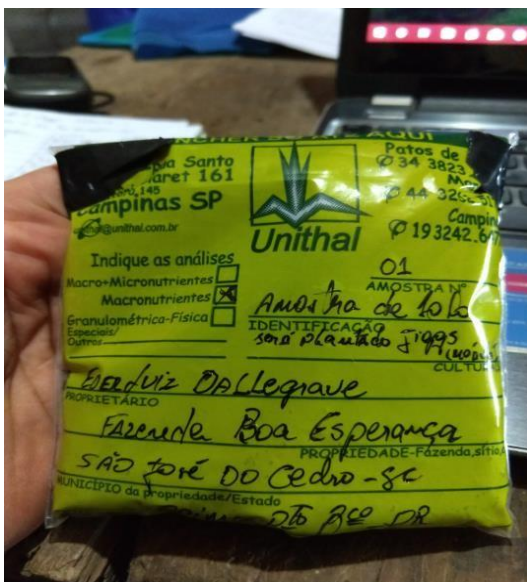 AQUI
Santo
aret 161
145
Campinas SP
@unithal.com.br
Unithal
Patos de
34 3823
44
Campin
19 3242.64
Indique as análises
Macro+Micronutrientes
Macronutrientes X
Granulométrica-Física
Especiais/
Outros
01
AMOSTRA Nº
Amostra de Solo
IDENTIFICAÇÃO
será plantado Jiggs
CULTU
DALLegrave
PROPRIETÁRIO
Fazenda Boa Esperança
PROPRIEDADE-Fazenda, sítio,
SÃO José DO Cedro-SC
MUNICÍPIO da propriedade/Estado